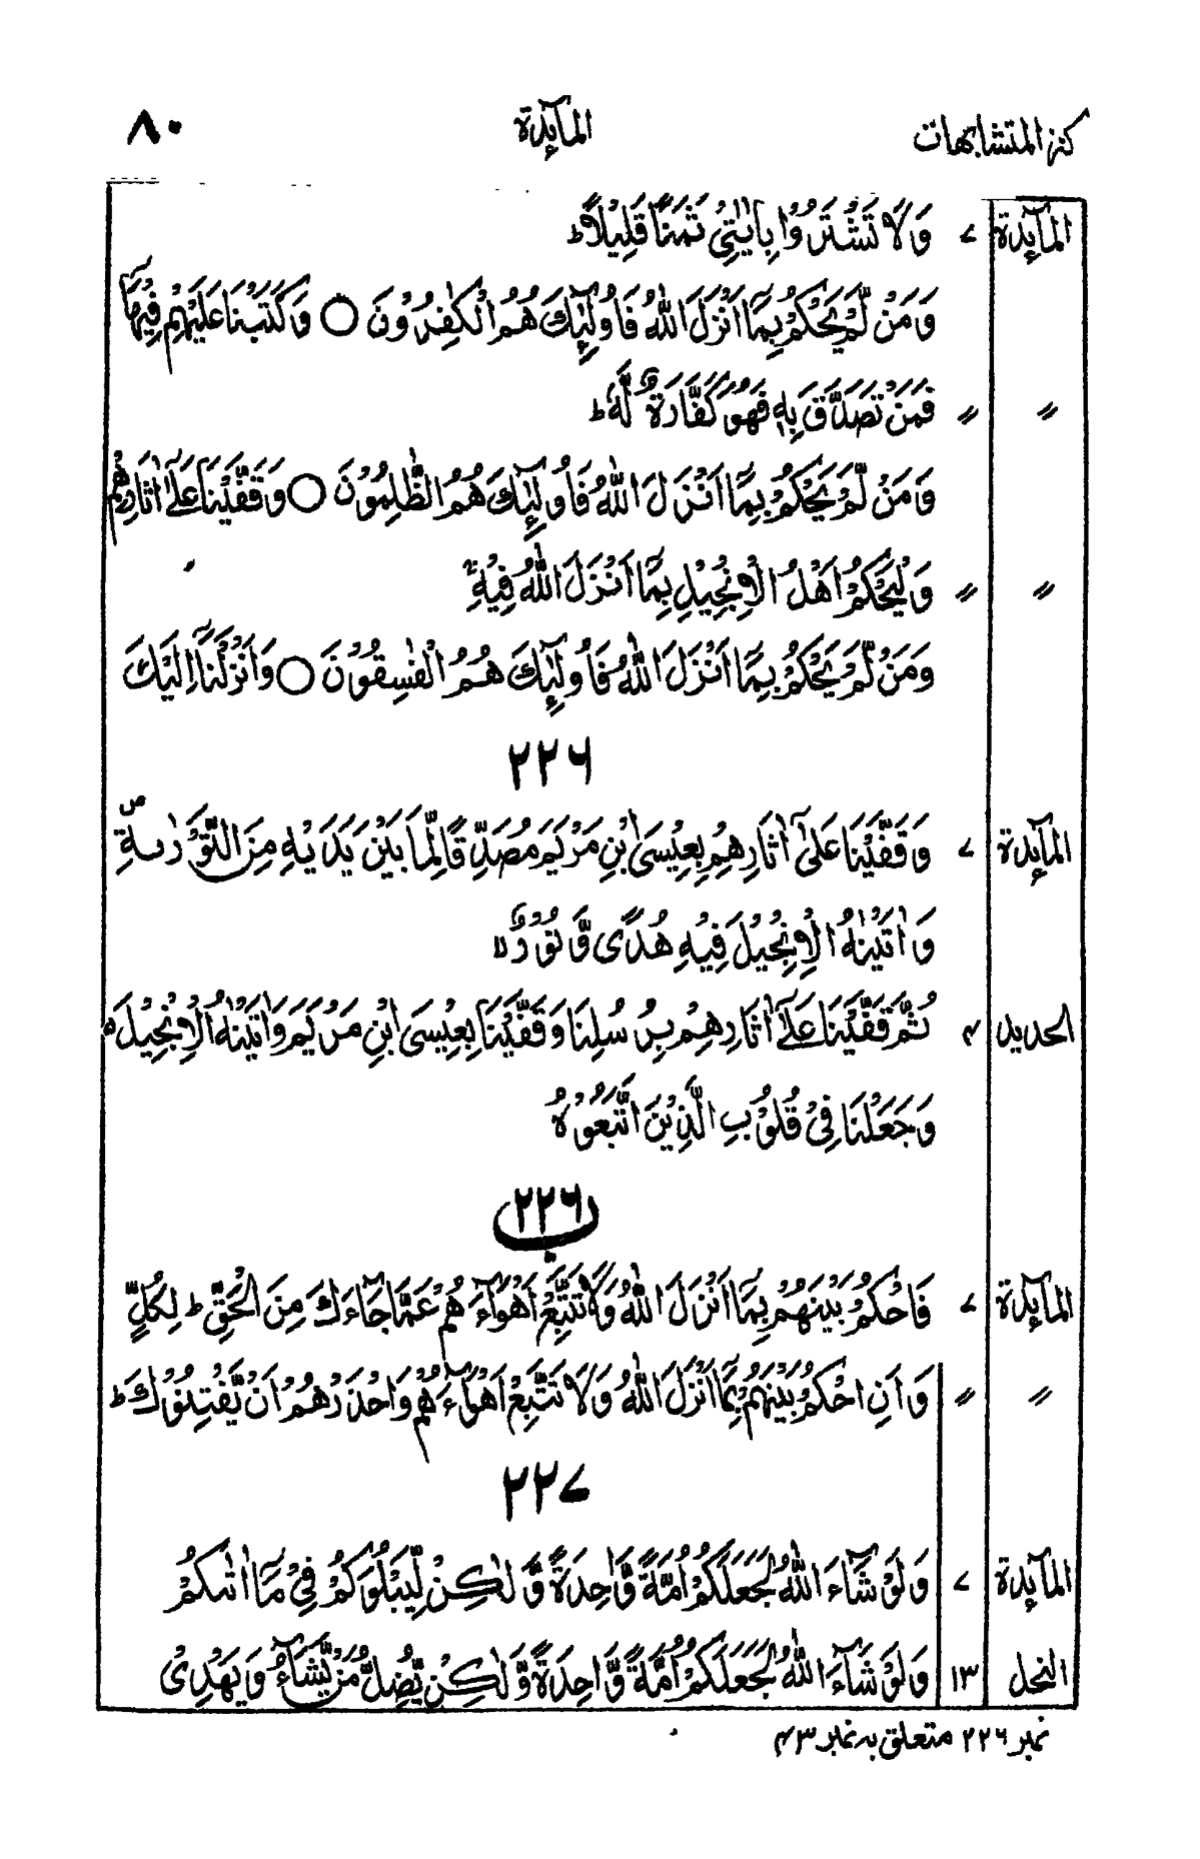 كنز المتشابهات المآئدة ٨٠
المآئدة ٧ وَلَا تَشْتَرُوْا بِاٰيٰتِيْ ثَمَنًا قَلِيْلًا ؕ
وَمَنْ لَّمْ يَحْكُمْ بِمَآ اَنْزَلَ اللّٰهُ فَاُولٰٓئِكَ هُمُ الْكٰفِرُوْنَ ○ وَكَتَبْنَا عَلَيْهِمْ فِيْهَآ
〃 〃 فَمَنْ تَصَدَّقَ بِهٖ فَهُوَ كَفَّارَةٌ لَّهٗ ؕ
وَمَنْ لَّمْ يَحْكُمْ بِمَآ اَنْزَلَ اللّٰهُ فَاُولٰٓئِكَ هُمُ الظّٰلِمُوْنَ ○ وَقَفَّيْنَا عَلٰٓى اٰثَارِهِمْ
〃 〃 وَلْيَحْكُمْ اَهْلُ الْاِنْجِيْلِ بِمَآ اَنْزَلَ اللّٰهُ فِيْهِ ؕ
وَمَنْ لَّمْ يَحْكُمْ بِمَآ اَنْزَلَ اللّٰهُ فَاُولٰٓئِكَ هُمُ الْفٰسِقُوْنَ ○ وَاَنْزَلْنَآ اِلَيْكَ
٢٢٦
المآئدة ٧ وَقَفَّيْنَا عَلٰٓى اٰثَارِهِمْ بِعِيْسَى ابْنِ مَرْيَمَ مُصَدِّقًا لِّمَا بَيْنَ يَدَيْهِ مِنَ التَّوْرٰىةِ ۪
وَاٰتَيْنٰهُ الْاِنْجِيْلَ فِيْهِ هُدًى وَّنُوْرٌ ۙ
الحديد ٤ ثُمَّ قَفَّيْنَا عَلٰٓى اٰثَارِهِمْ بِرُسُلِنَا وَقَفَّيْنَا بِعِيْسَى ابْنِ مَرْيَمَ وَاٰتَيْنٰهُ الْاِنْجِيْلَ ۥۙ
وَجَعَلْنَا فِيْ قُلُوْبِ الَّذِيْنَ اتَّبَعُوْهُ
٢٢٦ ب
المآئدة ٧ فَاحْكُمْ بَيْنَهُمْ بِمَآ اَنْزَلَ اللّٰهُ وَلَا تَتَّبِعْ اَهْوَآءَهُمْ عَمَّا جَآءَكَ مِنَ الْحَقِّ ؕ لِكُلٍّ
〃 〃 وَاَنِ احْكُمْ بَيْنَهُمْ بِمَآ اَنْزَلَ اللّٰهُ وَلَا تَتَّبِعْ اَهْوَآءَهُمْ وَاحْذَرْهُمْ اَنْ يَّفْتِنُوْكَ ؕ
٢٢٧
المآئدة ٧ وَلَوْ شَآءَ اللّٰهُ لَجَعَلَكُمْ اُمَّةً وَّاحِدَةً وَّلٰكِنْ لِّيَبْلُوَكُمْ فِيْ مَآ اٰتٰىكُمْ
النحل ١٣ وَلَوْ شَآءَ اللّٰهُ لَجَعَلَكُمْ اُمَّةً وَّاحِدَةً وَّلٰكِنْ يُّضِلُّ مَنْ يَّشَآءُ وَيَهْدِيْ
نمبر ٢٢٦ متعلق به نمبر ٤٣